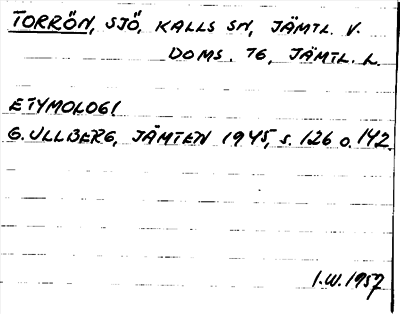 TORRÖN, SJÖ, KALLS SN, JÄMTL. V.
DOMS. 76, JÄMTL. L.
ETYMOLOGI
G. ULLBERG, JÄMTEN 1945, S. 126 O. 142
I.W. 1957